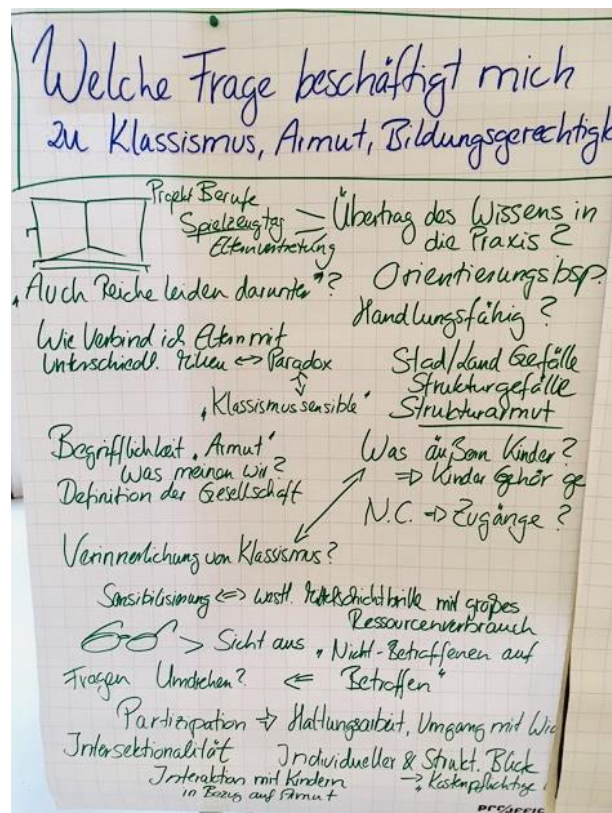 Welche Frage beschäftigt mich
zu Klassismus, Armut, Bildungsgerechtigk
Projekt Berufe
Spielzeugtag
Elternvertretung
Übertrag des Wissens in
die Praxis?
"Auch Reiche leiden darunter"?
Orientierungsbsp.
Handlungsfähig?
Wie Verbind ich Eltern mit
Unterschiedl. ⇔ Paradox
"Klassismussensible"
Stad/Land Gefälle
Strukturgefälle
Strukturarmut
Begrifflichkeit "Armut"
Was meinen wir?
Definition der Gesellschaft
Was äußern Kinder?
⇒ Kinder Gehör ge
N.C. ⇒ Zugänge?
Verinnerlichung von Klassismus?
Sensibilisierung ⇔ westl. Mittelschichtbrille mit großes
Ressourcenverbrauch
> Sicht aus "Nicht-Betroffenen auf
Fragen Umdrehen? ⇐ Betroffen"
Partizipation ⇒ Haltungsarbeit, Umgang mit
Intersektionalität
Individueller & Strukt. Blick
Interaktion mit Kindern
in Bezug auf Armut
→ Kostenpflichtige